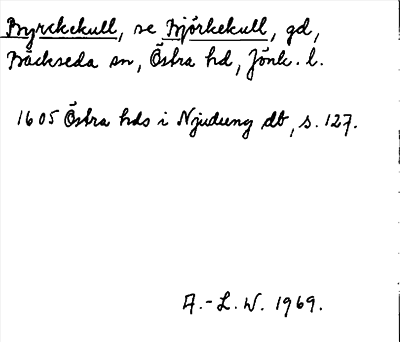 Byrckekull, se Björkekull, gd,
Bäckseda sn, Östra hd, Jönk. l.
1605 Östra hds i Njudung db, s. 127.
A.-L. W. 1969.